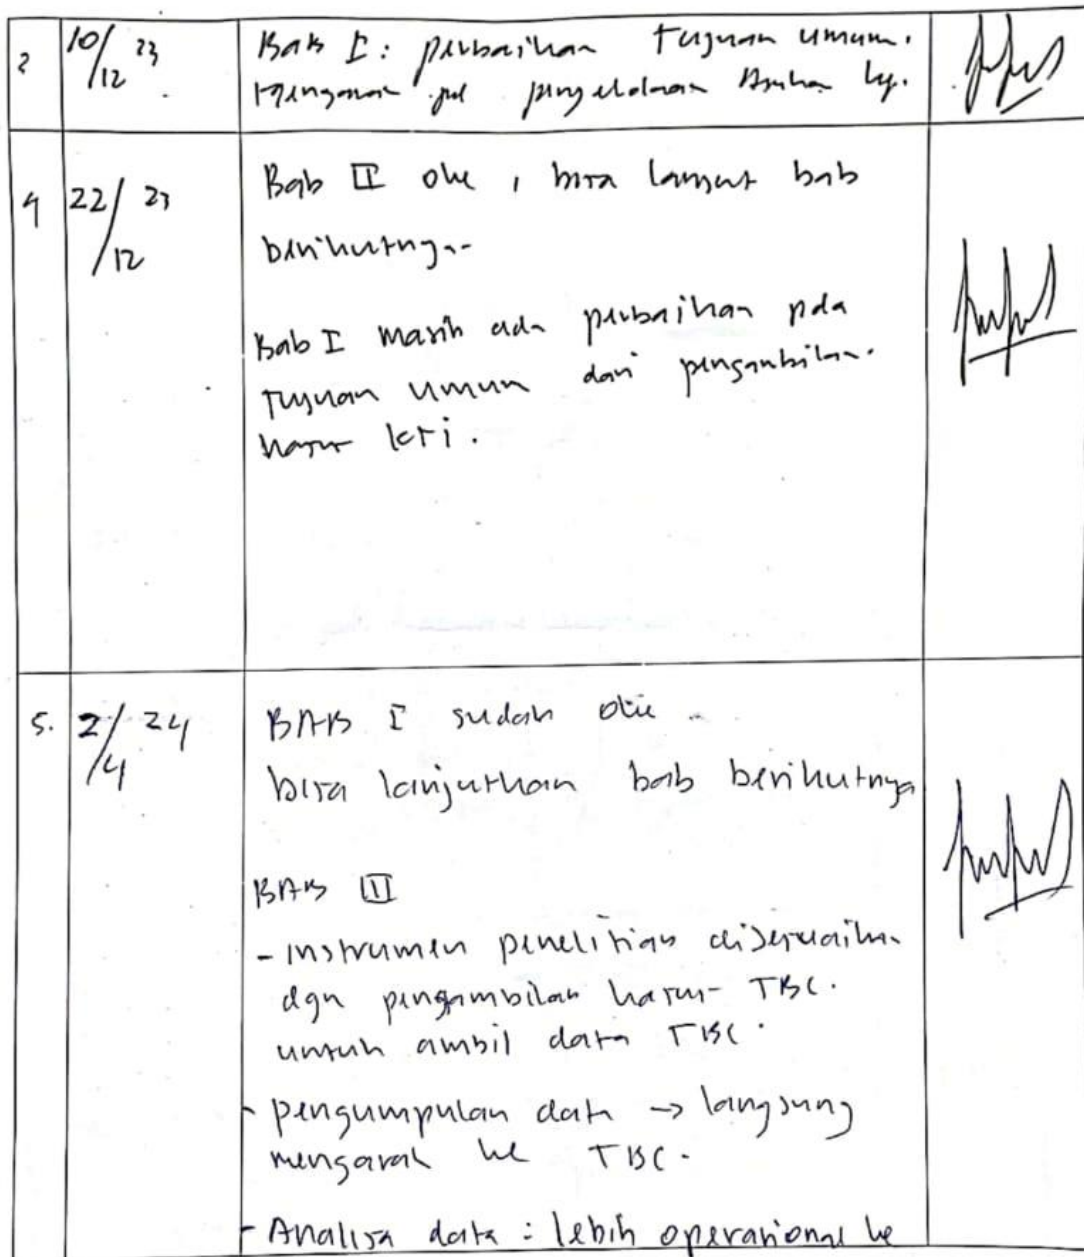 2 10/12 23 Bab I : perbaikan tujuan umum.
pengelolaan Asuhan kp.
4 22/12 23 Bab II oke , bisa lanjut bab
berikutnya
Bab I masih ada perbaikan pda
tujuan umum dari pengambilan
kasus KTI .
5. 2/4 24 BAB I sudah oke
bisa lanjutkan bab berikutnya
BAB III
- instrumen penelitian disesuaikan
dgn pengambilan kasus TBC.
untuk ambil data TBC .
- pengumpulan data → langsung
mengarah ke TBC .
- Analisa data : lebih operasional ke